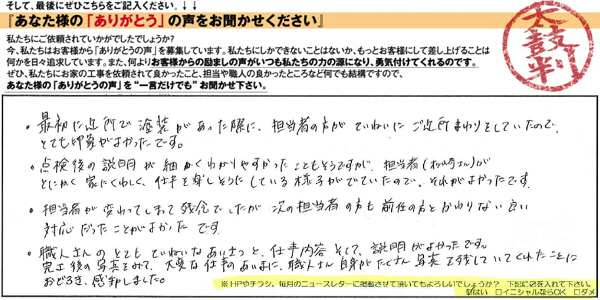 そして、最後にぜひこちらをご記入ください。↓↓
『あなた様の「ありがとう」の声をお聞かせください』
太鼓判
私たちにご依頼されていかがでしたでしょうか?
今、私たちはお客様から「ありがとうの声」を募集しています。私たちにしかできないことはないか、もっとお客様にして差し上げることは
何かを日々追求しています。また、何よりお客様からの励ましの声がいつも私たちの力の源になり、勇気付けてくれるのです。
ぜひ、私たちにお家の工事を依頼されて良かったこと、担当や職人の良かったところなど何でも結構ですので、
あなた様の「ありがとうの声」を"一言だけでも"お聞かせ下さい。
・最初に近所で塗装があった際に、担当者の方がていねいにご近所まわりをしていたので、
とても印象がよかったです。
・点検後の説明が細かくわかりやすかったこともそうですが、担当者(松崎さん)が
とにかく家にくわしく、仕事を楽しそうにしている様子がでていたので、それがよかったです。
・担当者が変わってしまって残念でしたが次の担当者の方も前任の方とかわりない良い
対応だったことがよかったです。
・職人さんのとてもていねいなあいさつと、仕事内容そして、説明がよかったです。
完工後の写真をみて、大変な仕事のあいまに、職人さん自身がたくさん写真を残していてくれたことに
おどろき、感動しました。
※HPやチラシ、毎月のニュースレターに掲載させて頂いてもよろしいでしょうか? 下記に○を入れて下さい。
□はい □イニシャルならOK □ダメ